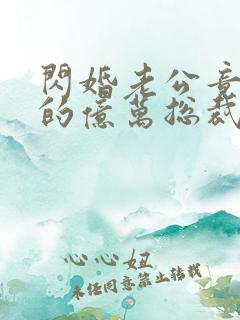 閃婚老公竟
的億萬總裁
心心妞
未任同意禁止轉載